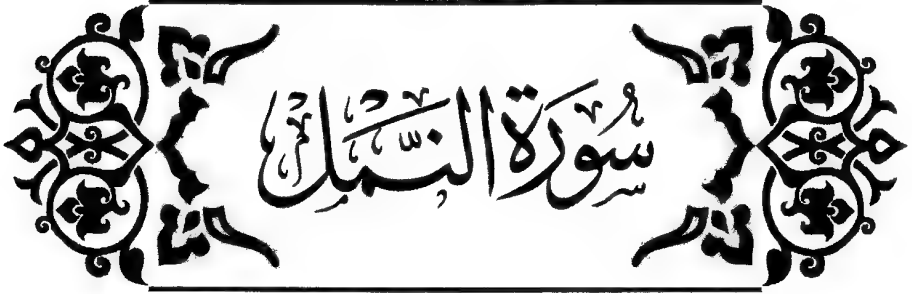 سُورَةُ النَّمْل